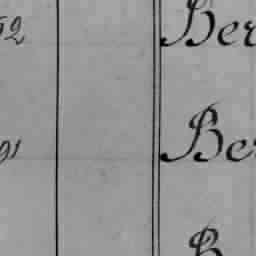 52 Ber
91 Ber
B